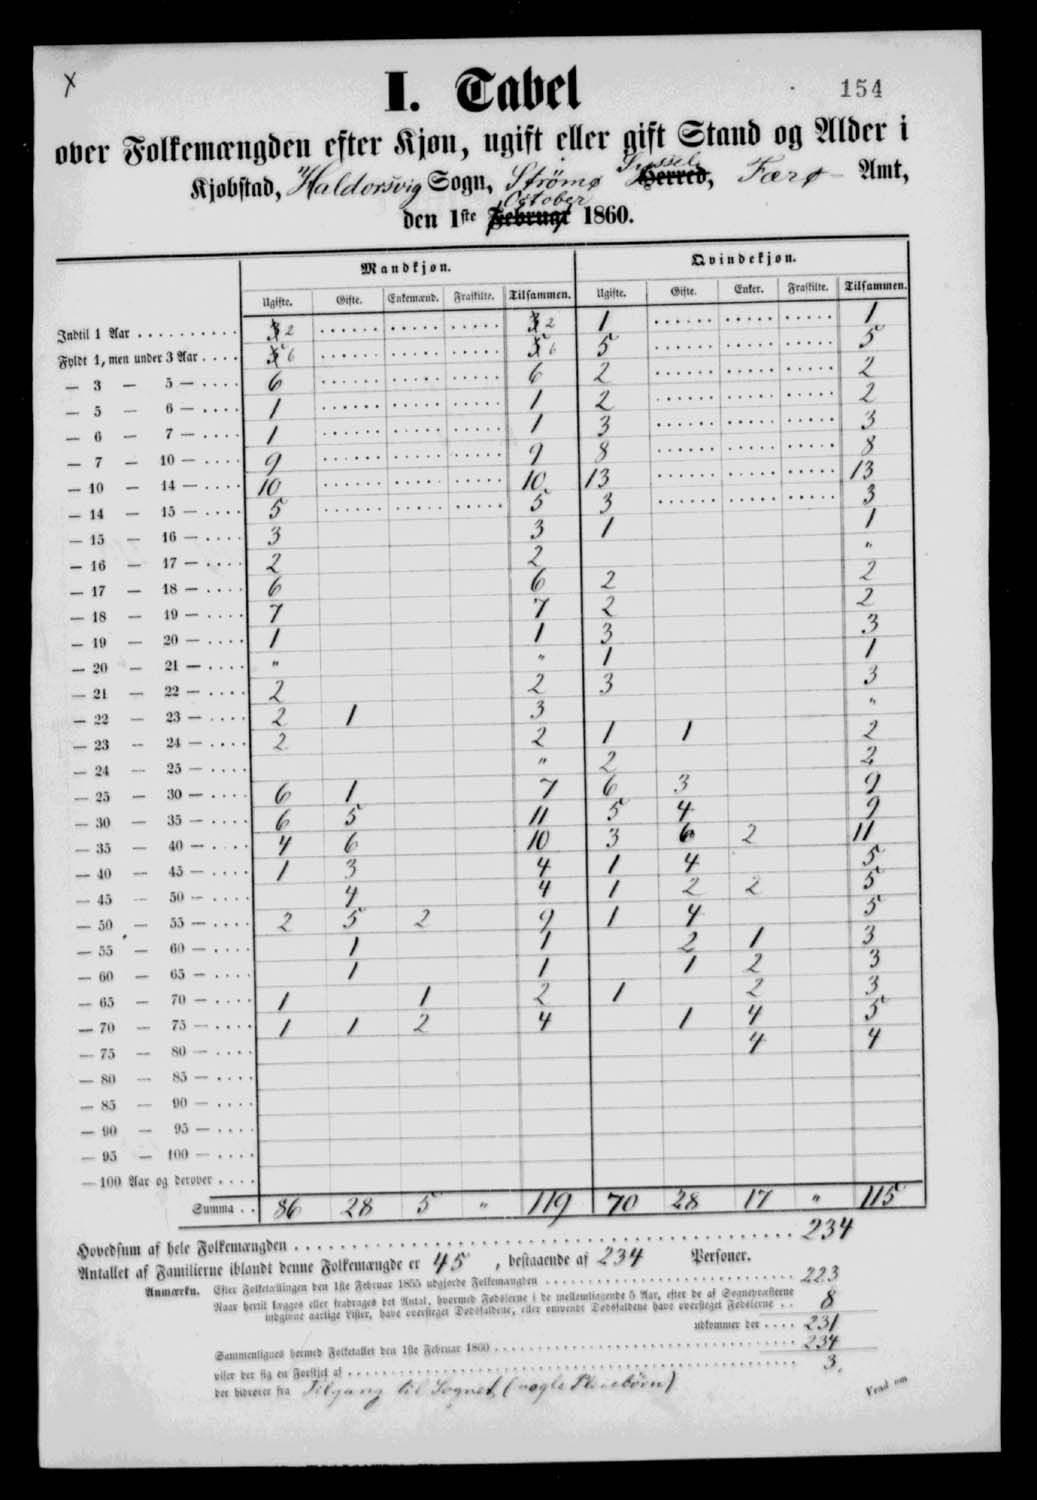 I. Tabel
154
over Folkemængden efter Kjøn, ugift eller gift Stand og Alder i
Kjøbstad, Haldorsvig Sogn, Strømø Syssel Herred, Færø Amt,
den 1ste October Februar 1860.
Mandkjøn. Qvindekjøn.
Ugifte. Gifte. Enkemænd. Fraskilte. Tilsammen. Ugifte. Gifte. Enker. Fraskilte. Tilsammen.
Indtil 1 Aar . . . 3 2 3 2 1 1
Fyldt 1, men under 3 Aar . . . . 5 6 5 6 5 5
— 3 — 5 — . . . . 6 6 2 2
— 5 — 6 — . . . . 1 1 2 2
— 6 — 7 — . . . . 1 1 3 3
— 7 — 10 — . . . . 9 9 8 8
— 10 — 14 — . . . . 10 10 13 13
— 14 — 15 — . . . . 5 5 3 3
— 15 — 16 — . . . . 3 3 1 1
— 16 — 17 — . . . . 2 2 "
— 17 — 18 — . . . . 6 6 2 2
— 18 — 19 — . . . . 7 7 2 2
— 19 — 20 — . . . . 1 1 3 3
— 20 — 21 — . . . . " " 1 1
— 21 — 22 — . . . . 2 2 3 3
— 22 — 23 — . . . . 2 1 3 "
— 23 — 24 — . . . . 2 2 1 1 2
— 24 — 25 — . . . . " 2 2
— 25 — 30 — . . . . 6 1 7 6 3 9
— 30 — 35 — . . . . 6 5 11 5 4 9
— 35 — 40 — . . . . 4 6 10 3 6 2 11
— 40 — 45 — . . . . 1 3 4 1 4 5
— 45 — 50 — . . . . 4 4 1 2 2 5
— 50 — 55 — . . . . 2 5 2 9 1 4 5
— 55 — 60 — . . . . 1 1 2 1 3
— 60 — 65 — . . . . 1 1 1 2 3
— 65 — 70 — . . . . 1 1 2 1 2 3
— 70 — 75 — . . . . 1 1 2 4 1 4 5
— 75 — 80 — . . . . 4 4
— 80 — 85 — . . . .
— 85 — 90 — . . . .
— 90 — 95 — . . . .
— 95 — 100 — . . . .
— 100 Aar og derover . . . .
Summa . . 86 28 5 " 119 70 28 17 " 115
Hovedsum af hele Folkemængden . . . 234
Antallet af Familierne iblandt denne Folkemængde er 45, bestaaende af 234 Personer.
Anmærkn. Efter Folketællingen den 1ste Februar 1855 udgjorde Folkemængden . . . 223
Naar hertil lægges eller fradrages det Antal, hvormed Fødslerne i de mellemliggende 5 Aar, efter de af Sognepræsterne
indgivne aarlige Lister, have oversteget Dødsfaldene, eller omvendt Dødsfaldene have oversteget Fødslerne . . 8
udkommer der . . . . 231
Sammenlignes hermed Folketallet den 1ste Februar 1860 . . . 234
viser der sig en Forskjel af . . . 3.
der hidrører fra Tilgang til Sognet (nogle Pleiebørn)
Vend om